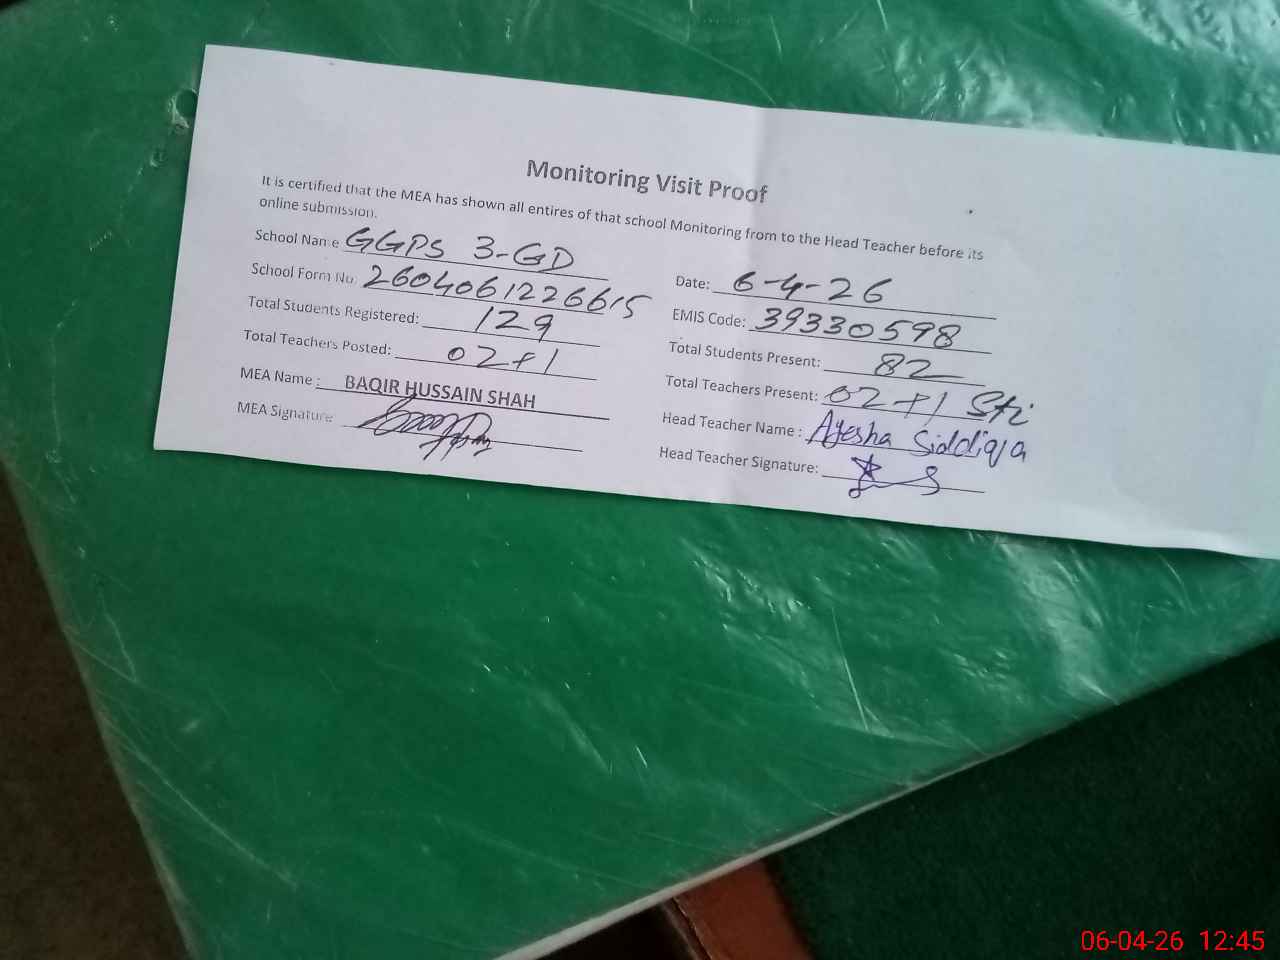 Monitoring Visit Proof
It is certified that the MEA has shown all entires of that school Monitoring from to the Head Teacher before its
online submission.
School Name GGPS 3-GD
Date: 6-4-26
School Form No. 2604061226615
EMIS Code: 39330598
Total Students Registered: 129
Total Students Present: 82
Total Teachers Posted: 02+1
Total Teachers Present: 02+1 Sti
MEA Name : BAQIR HUSSAIN SHAH
Head Teacher Name : Ayesha Siddiqa
MEA Signature:
Head Teacher Signature:
06-04-26 12:45